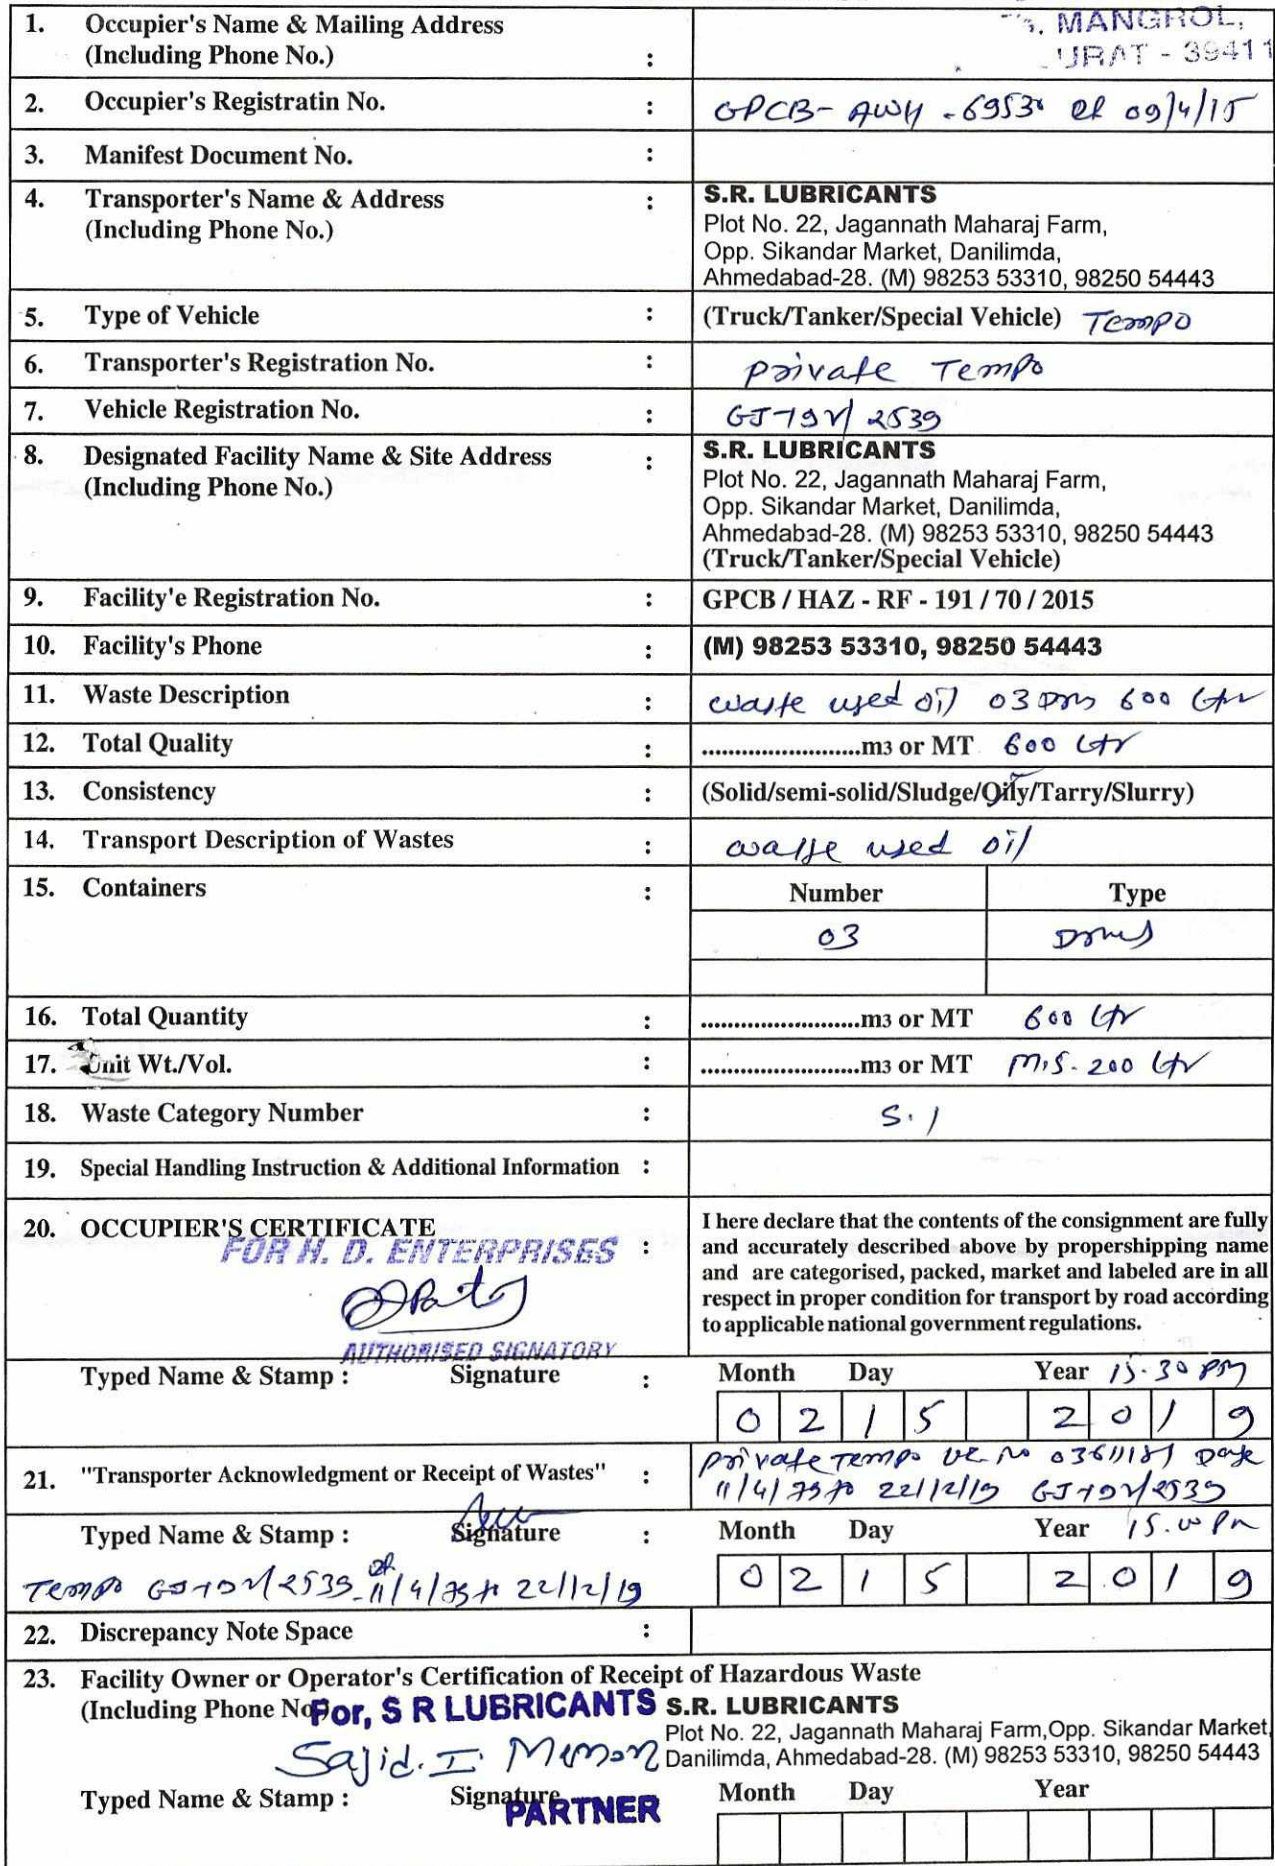 1. Occupier's Name & Mailing Address
(Including Phone No.) :
MANGROL,
URAT - 39411
2. Occupier's Registratin No. : GPCB- AWH -6953 09/4/15
3. Manifest Document No. :
4. Transporter's Name & Address
(Including Phone No.) :
S.R. LUBRICANTS
Plot No. 22, Jagannath Maharaj Farm,
Opp. Sikandar Market, Danilimda,
Ahmedabad-28. (M) 98253 53310, 98250 54443
5. Type of Vehicle : (Truck/Tanker/Special Vehicle) Tempo
6. Transporter's Registration No. : private Tempo
7. Vehicle Registration No. : 2539
8. Designated Facility Name & Site Address
(Including Phone No.) :
S.R. LUBRICANTS
Plot No. 22, Jagannath Maharaj Farm,
Opp. Sikandar Market, Danilimda,
Ahmedabad-28. (M) 98253 53310, 98250 54443
(Truck/Tanker/Special Vehicle)
9. Facility'e Registration No. : GPCB / HAZ - RF - 191 / 70 / 2015
10. Facility's Phone : (M) 98253 53310, 98250 54443
11. Waste Description : waste used oil 03 600 Ltr
12. Total Quality : ........................m3 or MT 600 Ltr
13. Consistency : (Solid/semi-solid/Sludge/Oily/Tarry/Slurry)
14. Transport Description of Wastes : waste used oil
15. Containers : Number Type
03
16. Total Quantity : ........................m3 or MT 600 Ltr
17. Unit Wt./Vol. : ........................m3 or MT M.S. 200 Ltr
18. Waste Category Number : 5.1
19. Special Handling Instruction & Additional Information :
20. OCCUPIER'S CERTIFICATE :
FOR H. D. ENTERPRISES
AUTHORISED SIGNATORY
I here declare that the contents of the consignment are fully
and accurately described above by propershipping name
and are categorised, packed, market and labeled are in all
respect in proper condition for transport by road according
to applicable national government regulations.
Typed Name & Stamp : Signature : Month Day Year 15.30 PM
0 2 1 5 2 0 1 9
21. "Transporter Acknowledgment or Receipt of Wastes" : private Tempo
22/12/19 2539
Typed Name & Stamp : Signature : Month Day Year
0 2 1 5 2 0 1 9
Tempo 2539 22/12/19
22. Discrepancy Note Space :
23. Facility Owner or Operator's Certification of Receipt of Hazardous Waste
(Including Phone No.
For, S R LUBRICANTS S.R. LUBRICANTS
Plot No. 22, Jagannath Maharaj Farm,Opp. Sikandar Market,
Sajid. I. Memon Danilimda, Ahmedabad-28. (M) 98253 53310, 98250 54443
Typed Name & Stamp : Signature Month Day Year
PARTNER